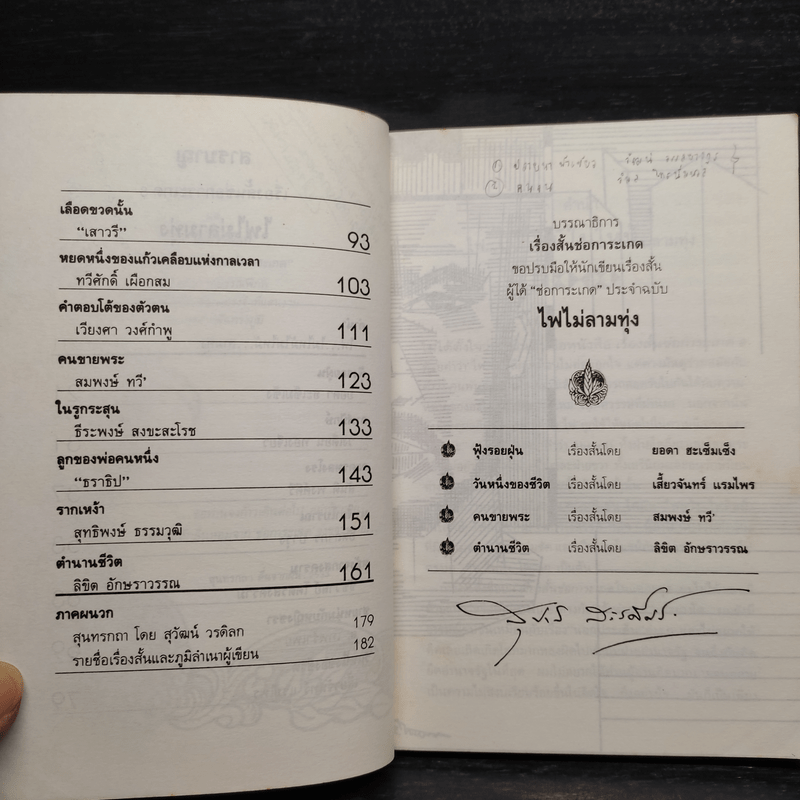 เลือดขวดนั้น
“เสาวรี” 93
หยดหนึ่งของแก้วเคลือบแห่งกาลเวลา
ทวีศักดิ์ เผือกสม 103
คำตอบโต้ของตัวตน
เวียงศา วงศ์กำพู 111
คนขายพระ
สมพงษ์ ทวี' 123
ในรูกระสุน
ธีระพงษ์ สงขะสะโรช 133
ลูกของพ่อคนหนึ่ง
“ธราธิป” 143
รากเหง้า
สุทธิพงษ์ ธรรมวุฒิ 151
ตำนานชีวิต
ลิขิต อักษราวรรณ 161
ภาคผนวก
สุนทรกถา โดย สุวัฒน์ วรดิลก 179
รายชื่อเรื่องสั้นและภูมิลำเนาผู้เขียน 182
บรรณาธิการ
เรื่องสั้นช่อการะเกด
ขอปรบมือให้นักเขียนเรื่องสั้น
ผู้ได้ “ช่อการะเกด” ประจำฉบับ
ไฟไม่ลามทุ่ง
ฟุ้งรอยฝุ่น เรื่องสั้นโดย ยอดา ฮะเซ็มเซ็ง
วันหนึ่งของชีวิต เรื่องสั้นโดย เสี้ยวจันทร์ แรมไพร
คนขายพระ เรื่องสั้นโดย สมพงษ์ ทวี'
ตำนานชีวิต เรื่องสั้นโดย ลิขิต อักษราวรรณ